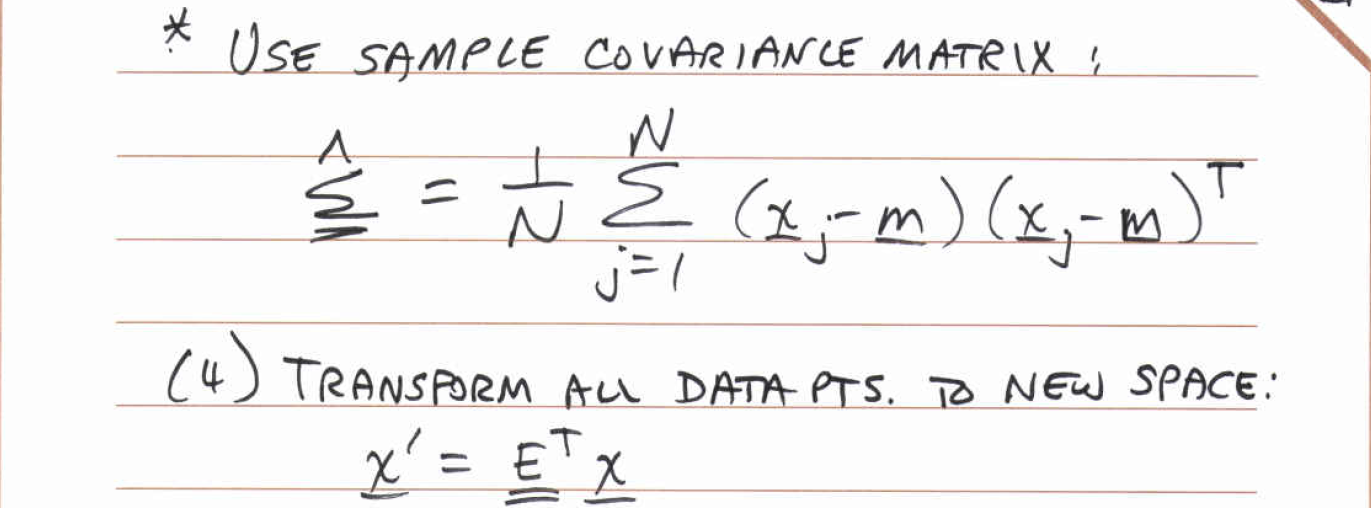 * USE SAMPLE COVARIANCE MATRIX :
Σ̲̲̂ = 1/N ∑_{j=1}^{N} (x̲_j - m̲) (x̲_j - m̲)^T
(4) TRANSFORM ALL DATA PTS. TO NEW SPACE:
x̲' = E̲̲^T x̲